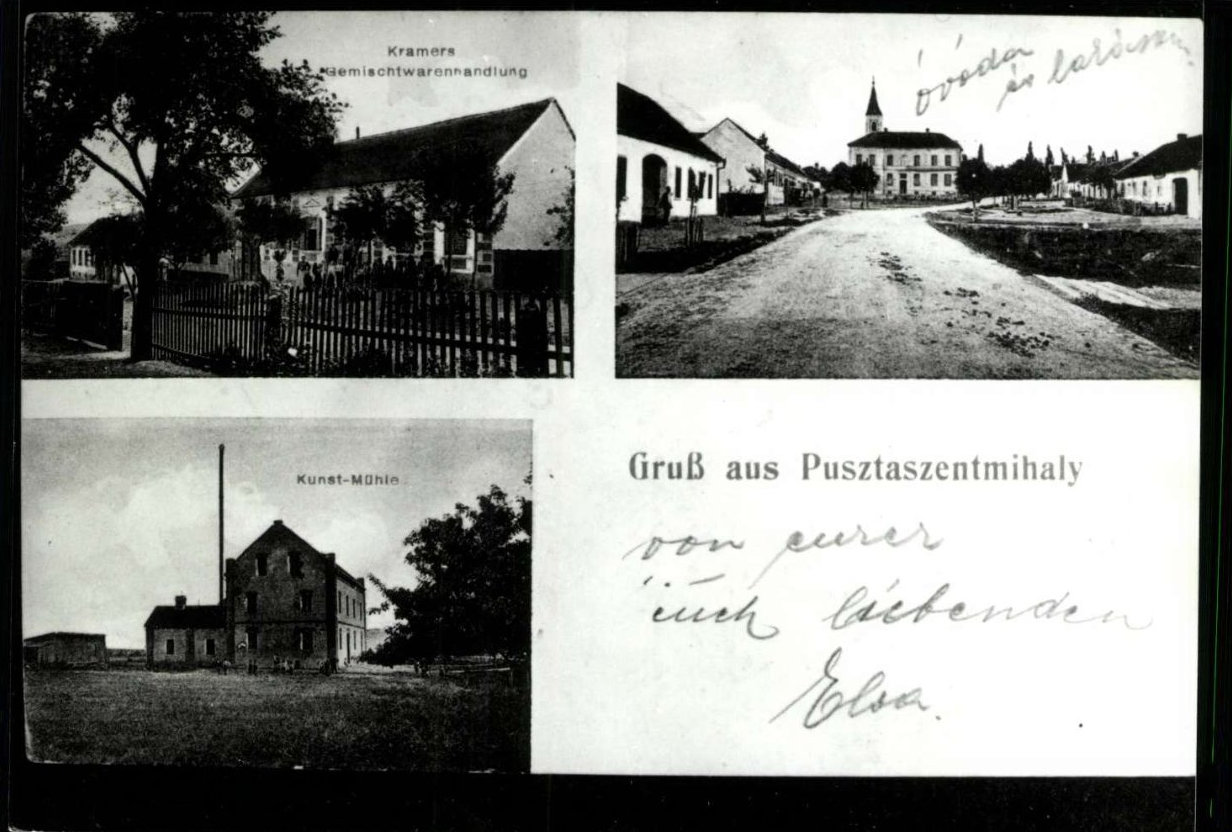 Kramers
Gemischtwarenhandlung
óvoda
és
Kunst-Mühle
Gruß aus Pusztaszentmihaly
von eurer
euch liebenden
Elsa.